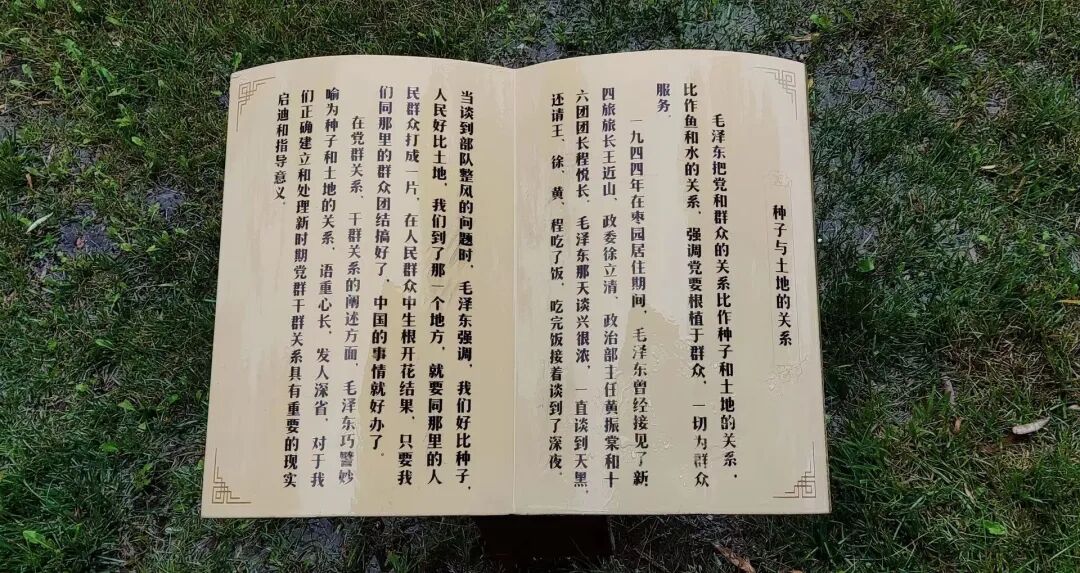 种子与土地的关系
毛泽东把党和群众的关系比作种子和土地的关系，
比作鱼和水的关系，强调党要根植于群众，一切为群众
服务。
一九四四年在枣园居住期间，毛泽东曾经接见了新
四旅旅长王近山、政委徐立清、政治部主任黄振棠和十
六团团长程悦长，毛泽东那天谈兴很浓，一直谈到天黑，
还请王、徐、黄、程吃了饭，吃完饭接着谈到了深夜。
当谈到部队整风的问题时，毛泽东强调，我们好比种子，
人民好比土地，我们到了那一个地方，就要同那里的人
民群众打成一片，在人民群众中生根开花结果，只要我
们同那里的群众团结搞好了，中国的事情就好办了。
在党群关系、干群关系的阐述方面，毛泽东巧譬妙
喻为种子和土地的关系，语重心长，发人深省，对于我
们正确建立和处理新时期党群干群关系具有重要的现实
启迪和指导意义。